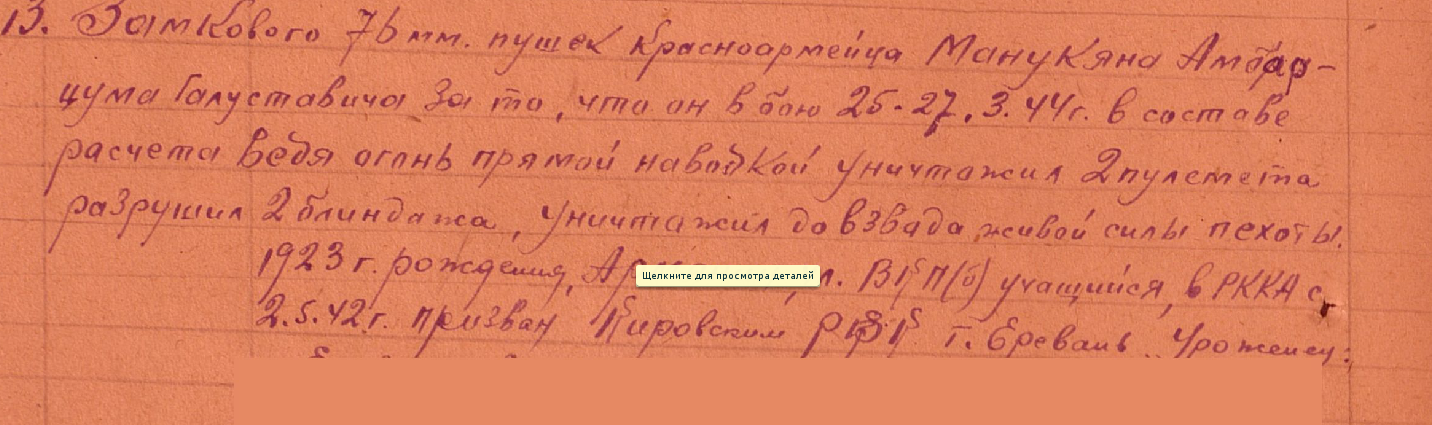 13. Замкового 76 мм. пушек красноармейца Манукяна Амбар-
цума Галуставича за то, что он в бою 25-27.3.44 г. в составе
расчета ведя огонь прямой наводкой уничтажил 2 пулемета
разрушил 2 блиндажа, уничтажил до взвада живой силы пехоты.
1923 г. рождения, Щелкните для просмотра деталей ВКП(б) учащийся, в РККА с
2.5.42 г. призван Кировским РВК г. Ереван Уроженец: